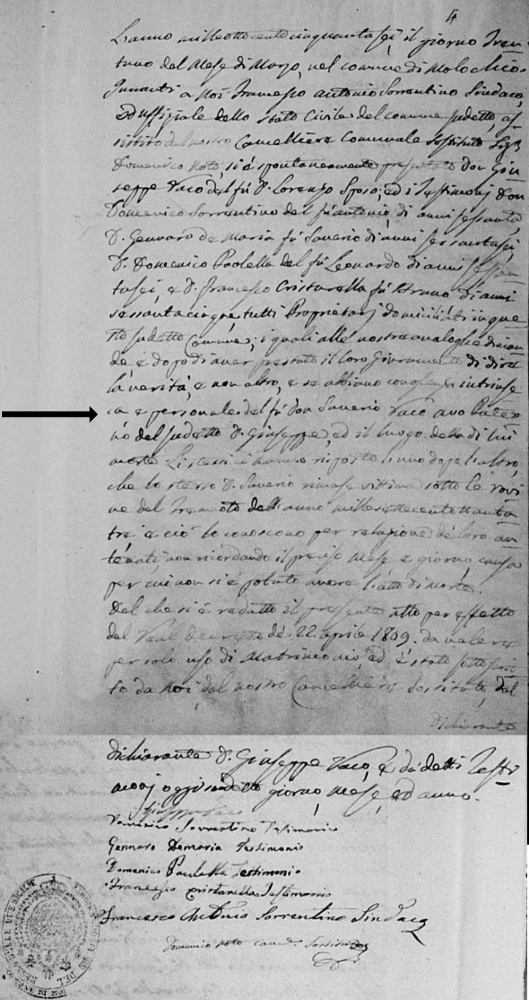 4
L'anno mille ottocento cinquantasei il giorno Tren=
tuno del Mese di Marzo, nel comune di Molochio
Innanti a Noi Francesco Antonio Sorrentino Sindaco,
ed uffiziale dello stato Civile del comune sudetto, as=
sistito del nostro Cancelliere Comunale sostituto Sig.r
Domenico Noto, si è spontaneamente presentato Don Giu=
seppe Vaco del fù D. Lorenzo Sposo, ed i Testimonj Don
Domenico Sorrentino del fù Antonio, di anni sessanta
D. Gennaro de Maria fù Saverio di anni sessantasei,
D. Domenico Paolella del fù Leonardo di anni
tasei, e D. Francesco Cristarella fù Bruno di anni
sessantacinque tutti Proprietarj domiciliati in que=
sto sudetto Comune; i quali alle nostre analoghe diman=
de, e dopo di aver prestato il loro giuramento di dire
la verità, e non altro, e se abbiano conoscenza intrinse=
ca e personale del fù Don Saverio Vaco avo Pater=
no del sudetto D. Giuseppe, ed il luogo della di lui
morte. Li stessi ci hanno risposto l'uno dopo l'altro,
che lo stesso D. Saverio rimase vittima sotto le rovi=
ne del Tremoto dell'anno mille settecento ottanta
tre, e ciò lo conoscono per relazione de' loro an=
tenati non ricordando il preciso mese e giorno, causa
per cui non si è potuto avere l'atto di morte.
Del che si è redatto il presente atto per effetto
del Real decreto de' 22 aprile 1809. da valere
per solo uso di Matrimonio, ed è stato sottoscrit=
to da Noi, dal nostro Cancelliere Sostituto, dal
dichiarante
dichiarante D. Giuseppe Vaco, e da' detti Testi=
monj oggi sudetto giorno, mese, ed anno.
Domenico Sorrentino Testimonio
Gennaro Demaria Testimonio
Domenico Paolella Testimonio
Francesco Cristarella Testimonio
Francesco Antonio Sorrentino Sindaco
Domenico Noto Canc. Sostituto